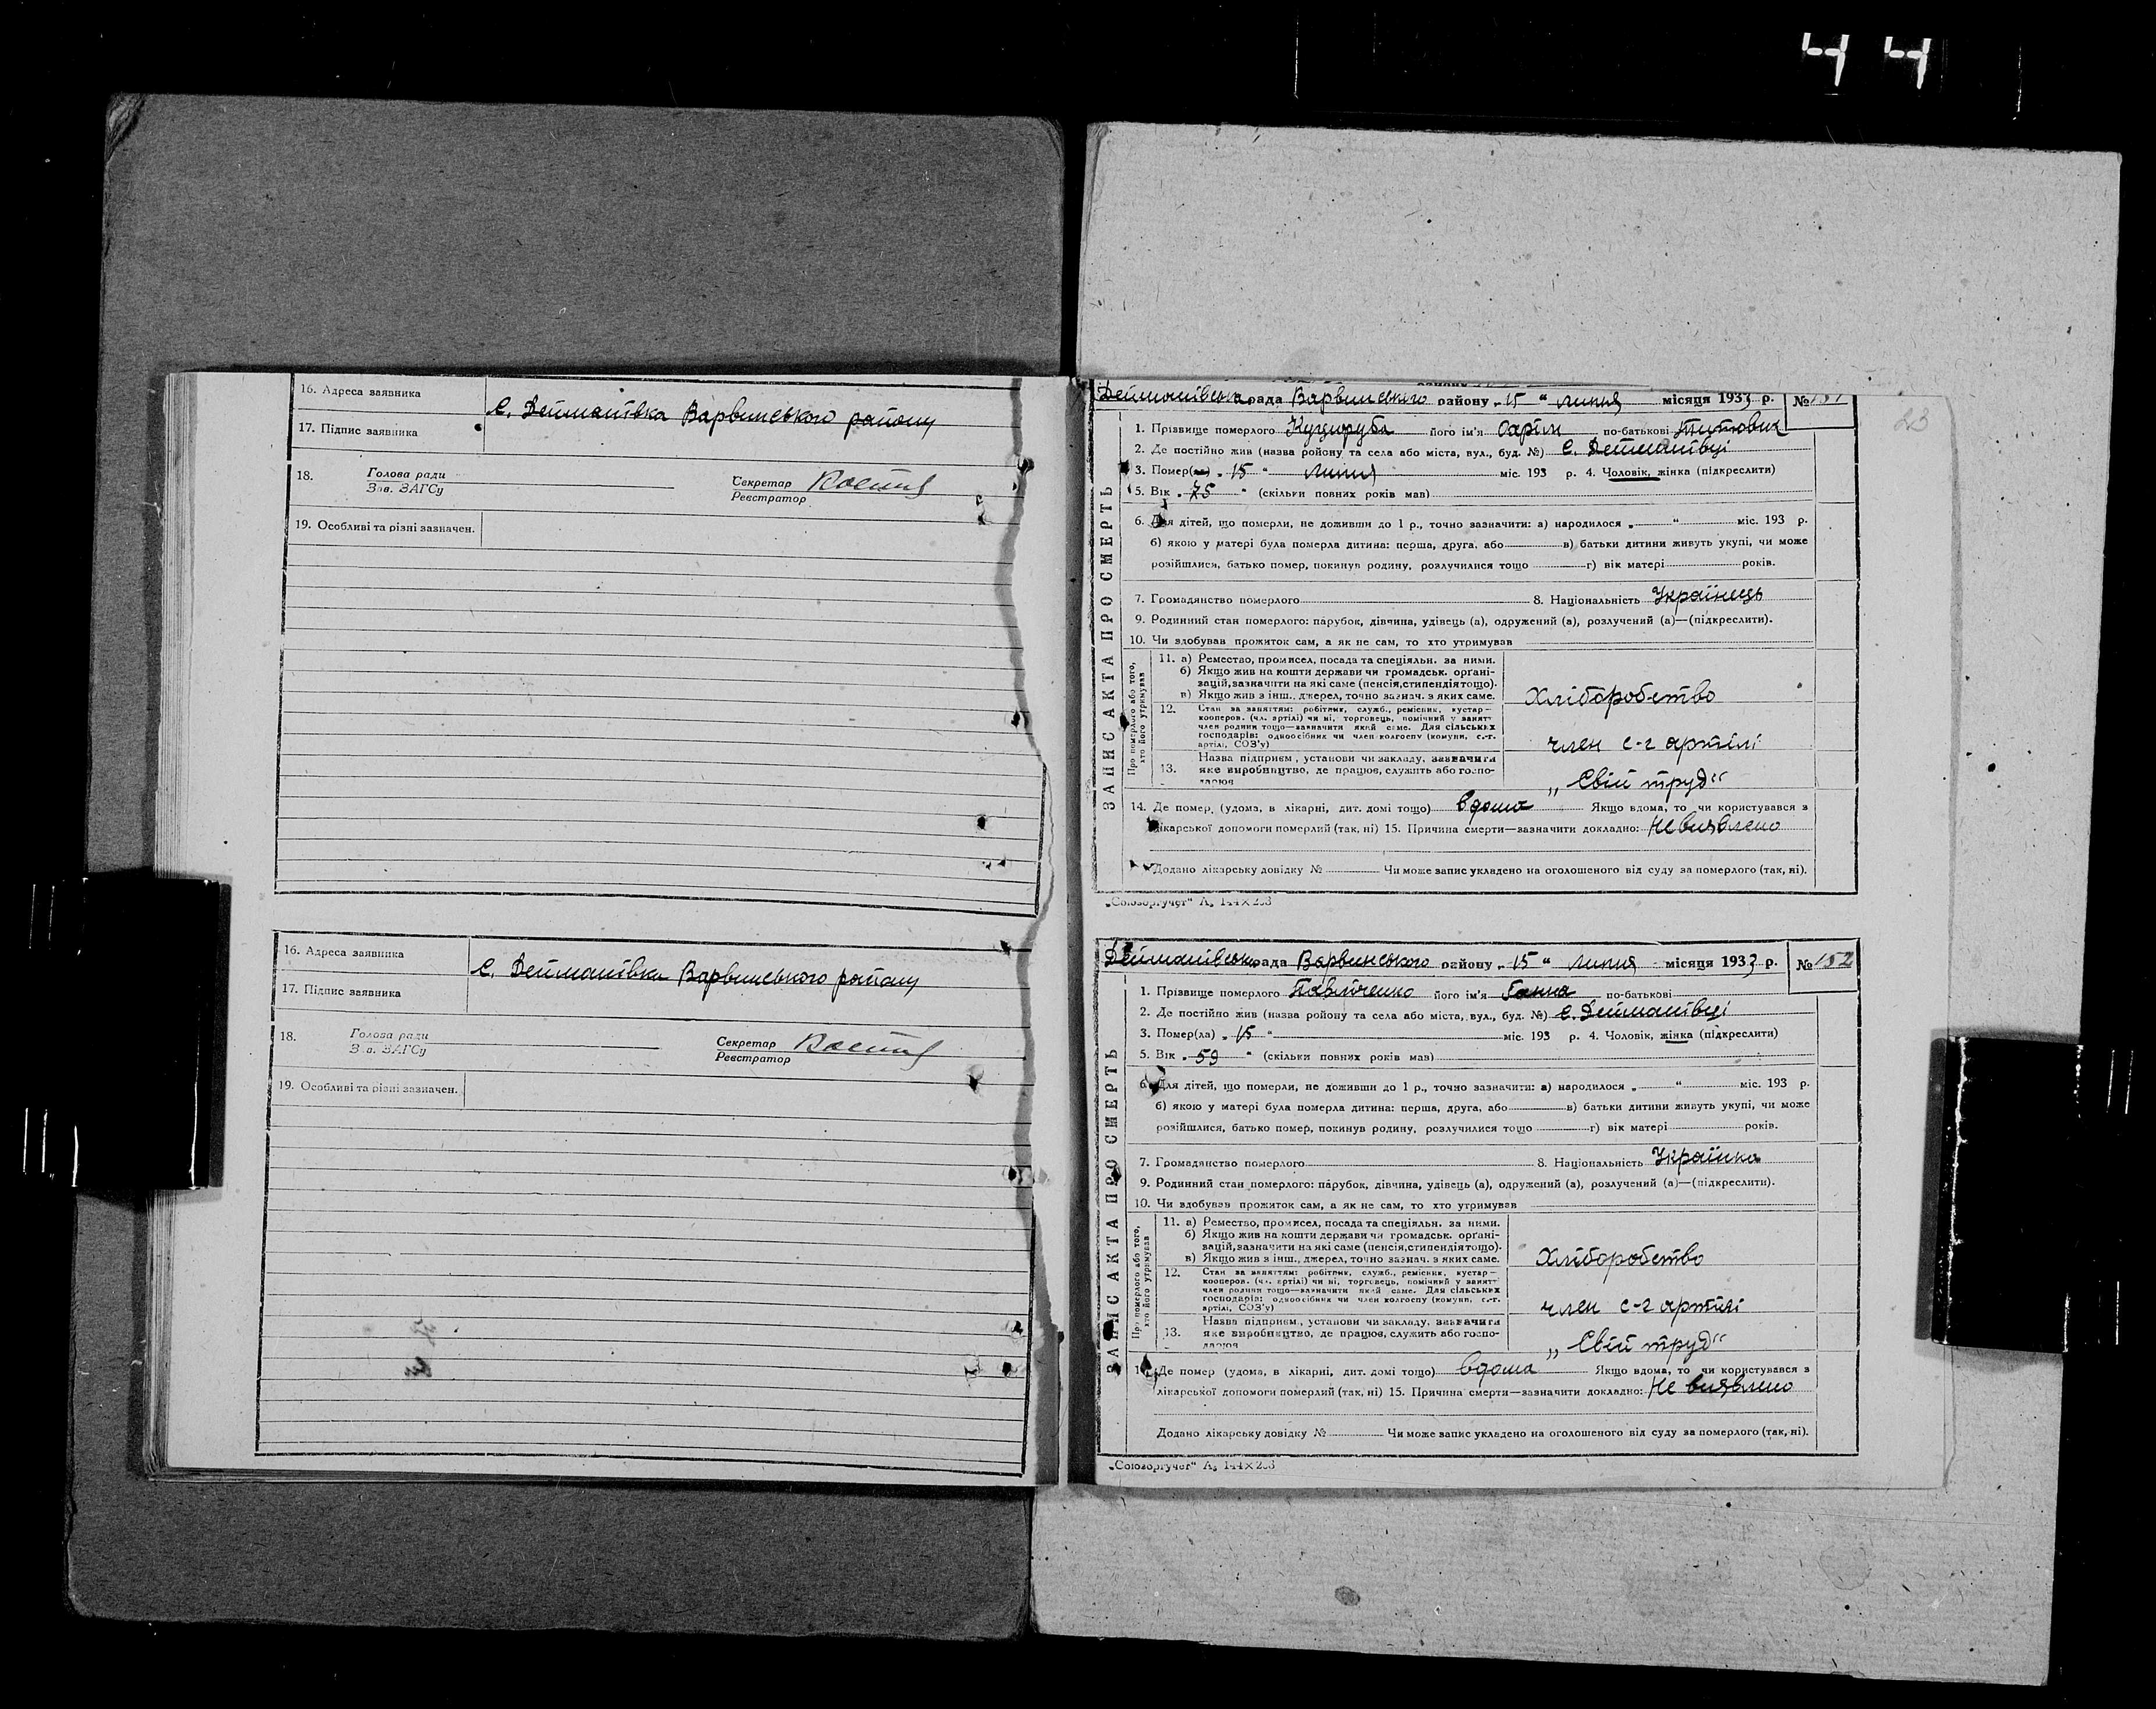 44
16. Адреса заявника
с. Дейманівка Варвинського району
17. Підпис заявника
18. Голова ради
Зав. ЗАГСу
Секретар
Реєстратор
19. Особливі та різні зазначен.
16. Адреса заявника
с. Дейманівка Варвинського району
17. Підпис заявника
18. Голова ради
Зав. ЗАГСу
Секретар
Реєстратор
19. Особливі та різні зазначен.
23
ЗАПИС АКТА ПРО СМЕРТЬ
Дейманівська рада Варвинського району „15“ липня місяця 1933 р. № 151
1. Прізвище померлого його ім'я по-батькові Титович
2. Де постійно жив (назва району та села або міста, вул., буд. №) с. Дейманівці
3. Помер(ла) „15“ липня міс. 193 р. 4. Чоловік, жінка (підкреслити)
5. Вік „75“ (скільки повних років мав)
6. Для дітей, що померли, не доживши до 1 р., точно зазначити: а) народилося „ “ міс. 193 р.
б) якою у матері була померла дитина: перша, друга, або в) батьки дитини живуть укупі, чи може
розійшлися, батько помер, покинув родину, розлучилися тощо г) вік матері років.
7. Громадянство померлого 8. Національність Українець
9. Родинний стан померлого: парубок, дівчина, удівець (а), одружений (а), розлучений (а)—(підкреслити).
10. Чи здобував прожиток сам, а як не сам, то хто утримував
Про померлого або того, хто його утримував
11. а) Ремество, промисел, посада та спеціяльн. за ними.
б) Якщо жив на кошти держави чи громадськ. органі-
зацій, зазначити на які саме (пенсія, стипендія тощо).
в) Якщо жив з інш., джерел, точно зазнач. з яких саме.
Хліборобство
12. Стан за заняттям: робітник, служб., ремісник, кустар—
кооперов. (чл. артілі) чи ні, торговець, помічний у занятт
член родини тощо—зазначити який саме. Для сільських
господарів: одноосібник чи член колгоспу (комуни, с.-г.
артілі, СОЗ'у)
член с-г артілі
13. Назва підприєм., установи чи закладу, зазначити
яке виробництво, де працює, служить або госпо-
дарює
„Свій труд“
14. Де помер (удома, в лікарні, дит. домі тощо) вдома Якщо вдома, то чи користувався з
лікарської допомоги померлий (так, ні) 15. Причина смерти—зазначити докладно: Не виявлено
Додано лікарську довідку № Чи може запис укладено на оголошеного від суду за померлого (так, ні).
„Союзоргучет“
ЗАПИС АКТА ПРО СМЕРТЬ
Дейманівська рада Варвинського району „15“ липня місяця 1933 р. № 152
1. Прізвище померлого Павліченко його ім'я Ганна по-батькові
2. Де постійно жив (назва району та села або міста, вул., буд. №) с. Дейманівці
3. Помер(ла) „15“ міс. 193 р. 4. Чоловік, жінка (підкреслити)
5. Вік „59“ (скільки повних років мав)
6. Для дітей, що померли, не доживши до 1 р., точно зазначити: а) народилося „ “ міс. 193 р.
б) якою у матері була померла дитина: перша, друга, або в) батьки дитини живуть укупі, чи може
розійшлися, батько помер, покинув родину, розлучилися тощо г) вік матері років.
7. Громадянство померлого 8. Національність Українка
9. Родинний стан померлого: парубок, дівчина, удівець (а), одружений (а), розлучений (а)—(підкреслити).
10. Чи здобував прожиток сам, а як не сам, то хто утримував
Про померлого або того, хто його утримував
11. а) Ремество, промисел, посада та спеціяльн. за ними.
б) Якщо жив на кошти держави чи громадськ. органі-
зацій, зазначити на які саме (пенсія, стипендія тощо).
в) Якщо жив з інш., джерел, точно зазнач. з яких саме.
Хліборобство
12. Стан за заняттям: робітник, служб., ремісник, кустар—
кооперов. (чл. артілі) чи ні, торговець, помічний у занятт
член родини тощо—зазначити який саме. Для сільських
господарів: одноосібник чи член колгоспу (комуни, с.-г.
артілі, СОЗ'у)
член с-г артілі
13. Назва підприєм., установи чи закладу, зазначити
яке виробництво, де працює, служить або госпо-
дарює
„Свій труд“
14. Де помер (удома, в лікарні, дит. домі тощо) вдома Якщо вдома, то чи користувався з
лікарської допомоги померлий (так, ні) 15. Причина смерти—зазначити докладно: Не виявлено
Додано лікарську довідку № Чи може запис укладено на оголошеного від суду за померлого (так, ні).
„Союзоргучет“